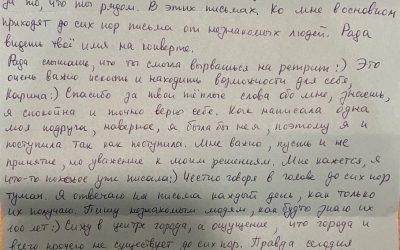 за то, что ты рядом. В этих письмах. Ко мне в основном
приходят до сих пор письма от незнакомых людей. Рада
видеть твоё имя на конверте.
Рада слышать, что ты смогла вырваться на ретрит :) Это
очень важно искать и находить возможности для себя,
Карина :) Спасибо за твои тёплые слова обо мне, знаешь,
я спокойна и точно верю себе. Как написала одна
моя подруга, наверное, я была бы не я, поэтому я и
поступила так как поступила. Мне важно, пусть и не
принятие, но уважение к моим решениям. Мне кажется, я
что-то похожее уже писала :) Честно говоря в голове до сих пор
туман. Я отвечаю на письма каждый день, как только
их получаю. Пишу незнакомым людям, как будто знаю их
100 лет :) Сижу в центре города, а ощущение, что города и
всего прочего не существует до сих пор. Правда сегодня